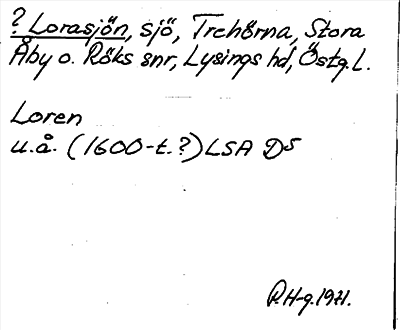 ? Lorasjön, sjö, Trehörna, Stora
Åby o. Röks snr, Lysings hd, Östg. L.
Loren
u.å. (1600-t.?) LSA D5
R.H-g. 1971.